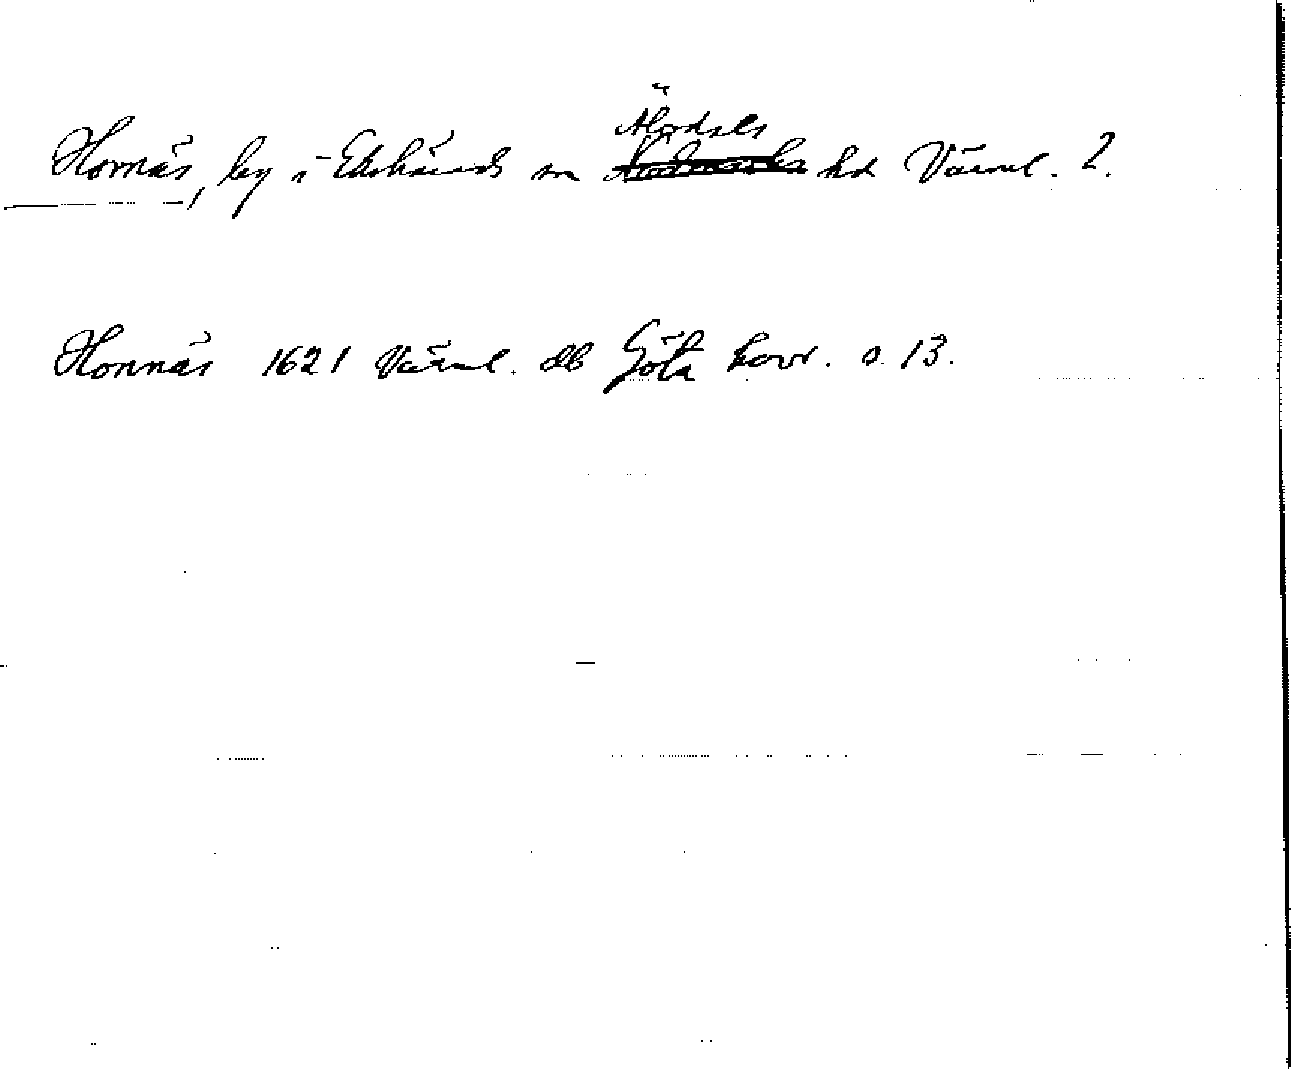 Älvdals
Hornäs, by i Ekshärads sn Nordmarks hd Värml. 2.
Honnäs 1621 Värml. db Göta hovr. o. 13.